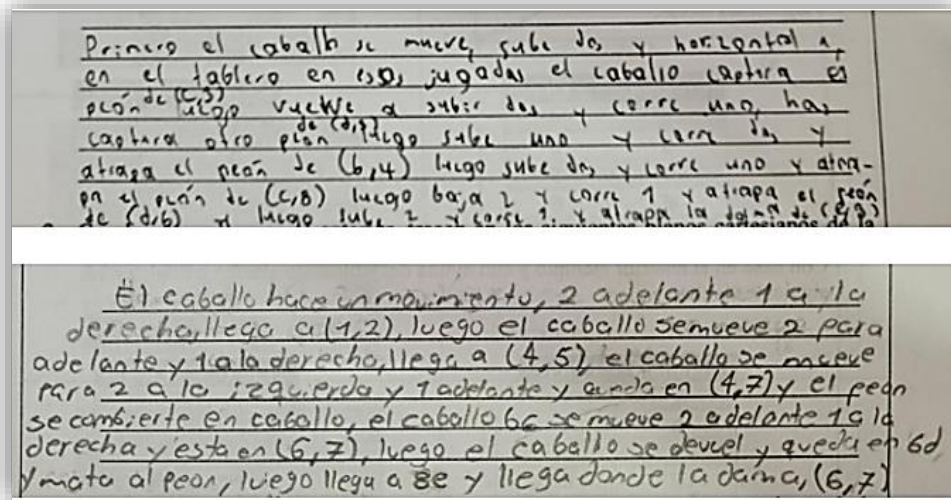 Primero el caballo se mueve, sube dos y horizontal 1,
en el tablero en esas jugadas el caballo captura el
peón de (c,3) luego vuelve a subir dos y corre uno, ha,
captura otro peón de luego sube uno y corre dos y
atrapa el peón de (b,4) luego sube dos y corre uno y atra-
pa el peón de (c,8) luego baja 2 y corre 1 y atrapa el peón
de (d,6) y luego sube 2 y corre 1, y atrapa la dama de
El caballo hace un movimiento, 2 adelante 1 a la
derecha, llega a (1,2), luego el caballo semueve 2 para
adelante y 1 a la derecha, llega a (4,5), el caballo se mueve
para 2 a la izquierda y 1 adelante y queda en (4,7) y el peón
se combierte en caballo, el caballo 6c se mueve 2 adelante 1 a la
derecha y esta en (6,7), luego el caballo se devuel y queda en 6d,
y mata al peon, luego llega a 8e y llega donde la dama, (6,7)